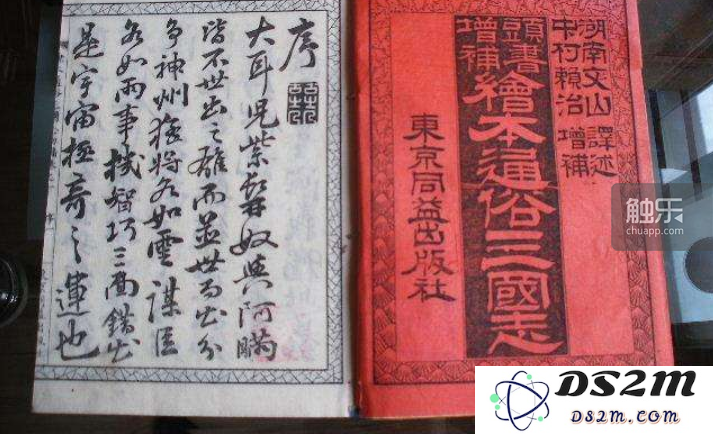 湖南文山 譯述
中村賴治 增補
頭書
增補
繪本通俗三國志
東京同益出版社
序
大耳兒紫髯奴與阿瞞
皆不世出之雄而並世而出分
爭神州猛将多如雲謀臣
多如雨事機智巧三面錯出
是宇宙極奇之運也
触乐
chuapp.com
DS2M
DS2m.com